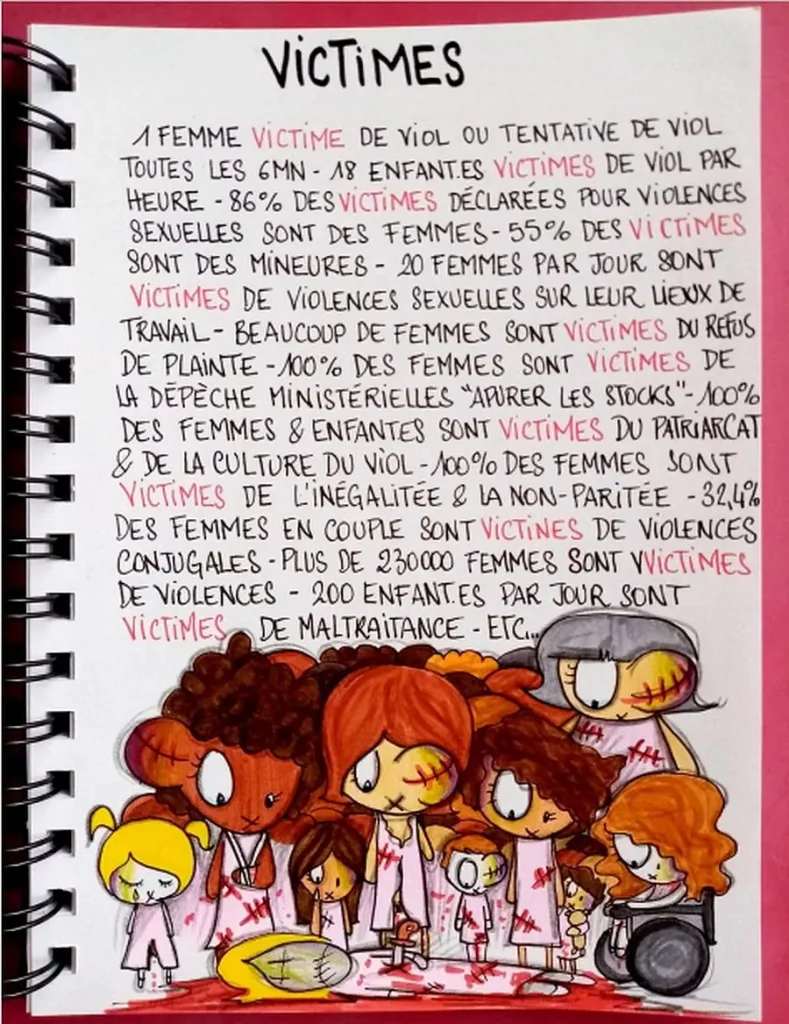 VICTIMES
1 FEMME VICTIME DE VIOL OU TENTATIVE DE VIOL
TOUTES LES 6MN - 18 ENFANT.ES VICTIMES DE VIOL PAR
HEURE - 86% DES VICTIMES DÉCLARÉES POUR VIOLENCES
SEXUELLES SONT DES FEMMES - 55% DES VICTIMES
SONT DES MINEURES - 20 FEMMES PAR JOUR SONT
VICTIMES DE VIOLENCES SEXUELLES SUR LEUR LIEUX DE
TRAVAIL - BEAUCOUP DE FEMMES SONT VICTIMES DU REFUS
DE PLAINTE - 100% DES FEMMES SONT VICTIMES DE
LA DÉPÈCHE MINISTÉRIELLES "APURER LES STOCKS" - 100%
DES FEMMES & ENFANTES SONT VICTIMES DU PATRIARCAT
& DE LA CULTURE DU VIOL - 100% DES FEMMES SONT
VICTIMES DE L'INÉGALITÉE & LA NON-PARITÉE - 32,4%
DES FEMMES EN COUPLE SONT VICTINES DE VIOLENCES
CONJUGALES - PLUS DE 230000 FEMMES SONT VVICTIMES
DE VIOLENCES - 200 ENFANT.ES PAR JOUR SONT
VICTIMES DE MALTRAITANCE - ETC...